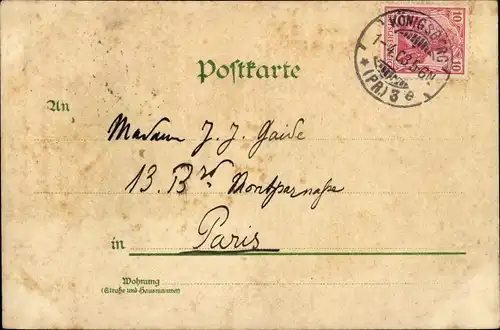 KÖNIGSBERG
(PR.) 3 e
10 10
Postkarte
An
Madam J. J. Gaide
13. Bᵈ Montparnaße
in Paris
Wohnung
(Straße und Hausnummer)